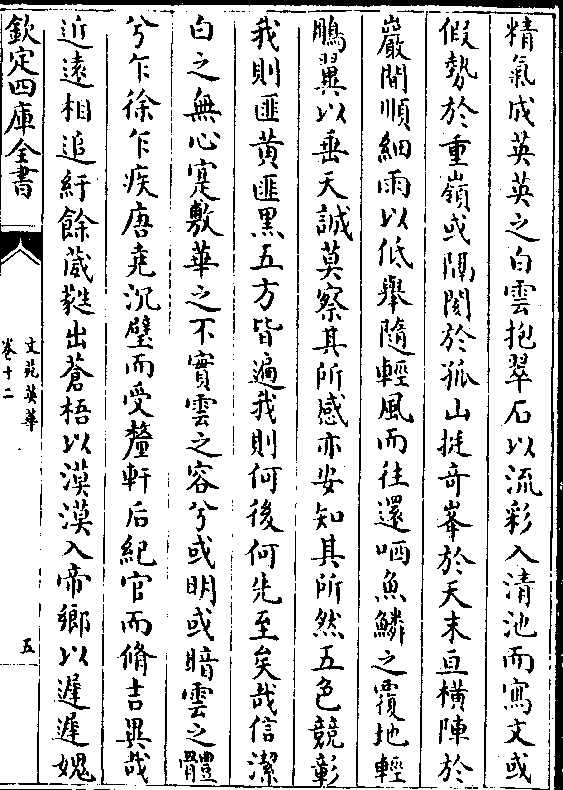 精氣成英英之白雲抱翠石以流彩入清池而寫文或
假勢於重嶺或隔閡於孤山挺奇峯於天末亘橫陣於
巖間順細雨以低舉隨輕風而往還哂魚鱗之覆地輕
鵬翼以垂天誠莫察其所感亦安知其所然五色競彰
我則匪黄匪黑五方皆遍我則何後何先至矣哉信潔
白之無心寔敷華之不實雲之容兮或明或暗雲之體
兮乍徐乍疾唐堯沉璧而受釐軒后紀官而脩吉異哉
近遠相追紆餘葳蕤出蒼梧以漠漠入帝鄉以遲遲媿
欽定四庫全書
文苑英華
卷十二
五